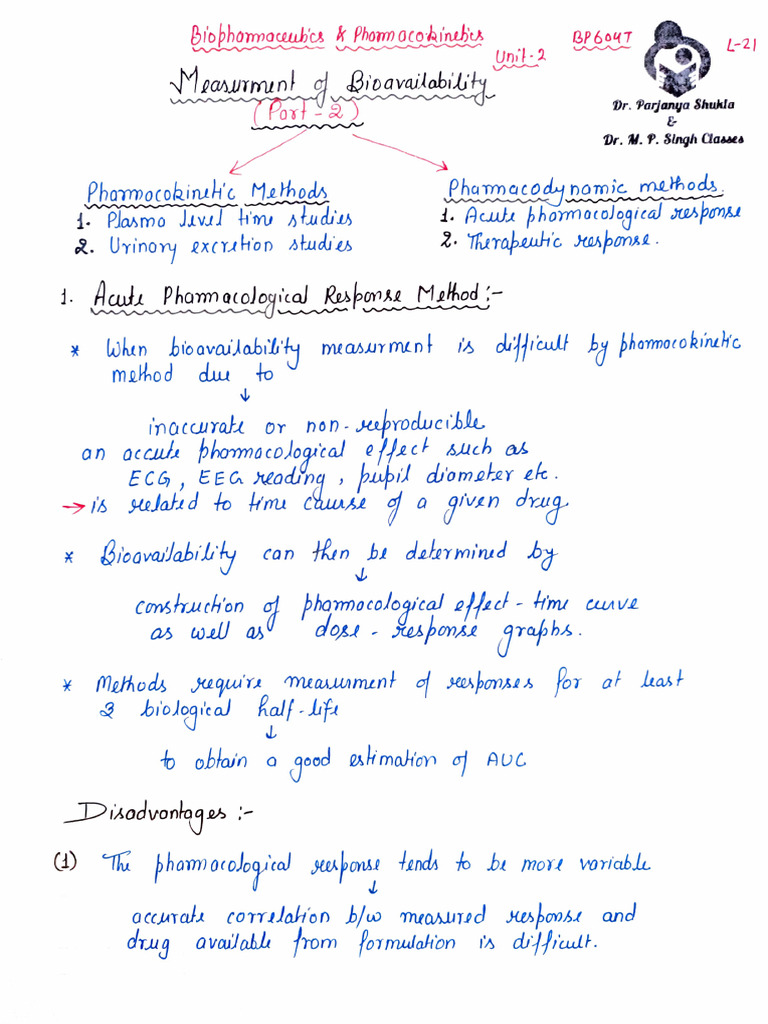 Biopharmaceutics & Pharmacokinetics
BP604T
L-21
Unit-2
Measurment of Bioavailability
(Part-2)
Dr. Parjanya Shukla
&
Dr. M. P. Singh Classes
Pharmacokinetic Methods
1. Plasma level time studies
2. Urinary excretion studies
Pharmacodynamic methods.
1. Acute pharmacological response
2. Therapeutic response.
1. Acute Pharmacological Response Method:-
* When bioavailability measurment is difficult by pharmacokinetic
method due to
↓
inaccurate or non-reproducible
an accute pharmacological effect such as
ECG, EEG reading, pupil diameter etc.
→ is related to time caurse of a given drug.
* Bioavailability can then be determined by
↓
construction of pharmacological effect-time curve
as well as dose-response graphs.
* Methods require measurment of responses for at least
3 biological half-life
↓
to obtain a good estimation of AUC
Disadvantages :-
(1) The pharmacological response tends to be more variable
↓
accurate correlation b/w measured response and
drug available from formulation is difficult.